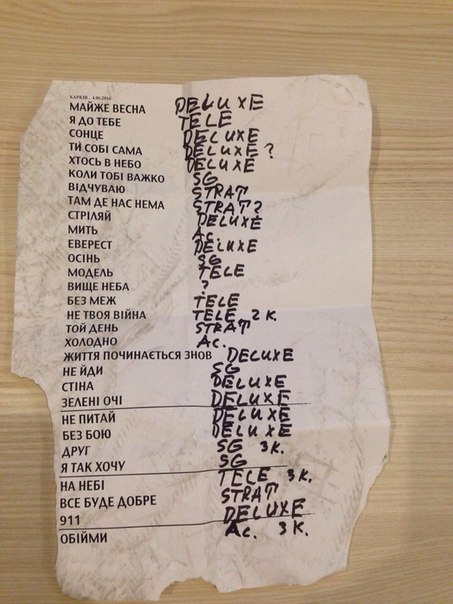 ХАРКІВ, 4.06.2016
МАЙЖЕ ВЕСНА DELUXE
Я ДО ТЕБЕ TELE
СОНЦЕ DELUXE
ТИ СОБІ САМА DELUXE ?
ХТОСЬ В НЕБО DELUXE
КОЛИ ТОБІ ВАЖКО SG
ВІДЧУВАЮ STRAT
ТАМ ДЕ НАС НЕМА STRAT ?
СТРІЛЯЙ DELUXE
МИТЬ Ac.
ЕВЕРЕСТ DELUXE
ОСІНЬ SG
МОДЕЛЬ TELE
ВИЩЕ НЕБА ?
БЕЗ МЕЖ TELE
НЕ ТВОЯ ВІЙНА TELE 2 К.
ТОЙ ДЕНЬ STRAT
ХОЛОДНО Ac.
ЖИТТЯ ПОЧИНАЄТЬСЯ ЗНОВ DELUXE
НЕ ЙДИ SG
СТІНА DELUXE
ЗЕЛЕНІ ОЧІ DELUXE
НЕ ПИТАЙ DELUXE
БЕЗ БОЮ DELUXE
ДРУГ SG 3 К.
Я ТАК ХОЧУ SG
НА НЕБІ TELE 3 К.
ВСЕ БУДЕ ДОБРЕ STRAT
911 DELUXE
ОБІЙМИ Ac. 3 К.